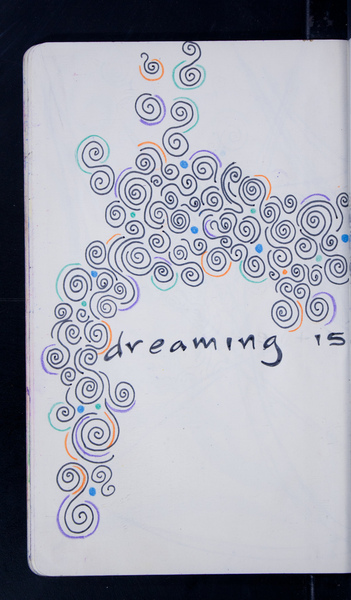 dreaming is